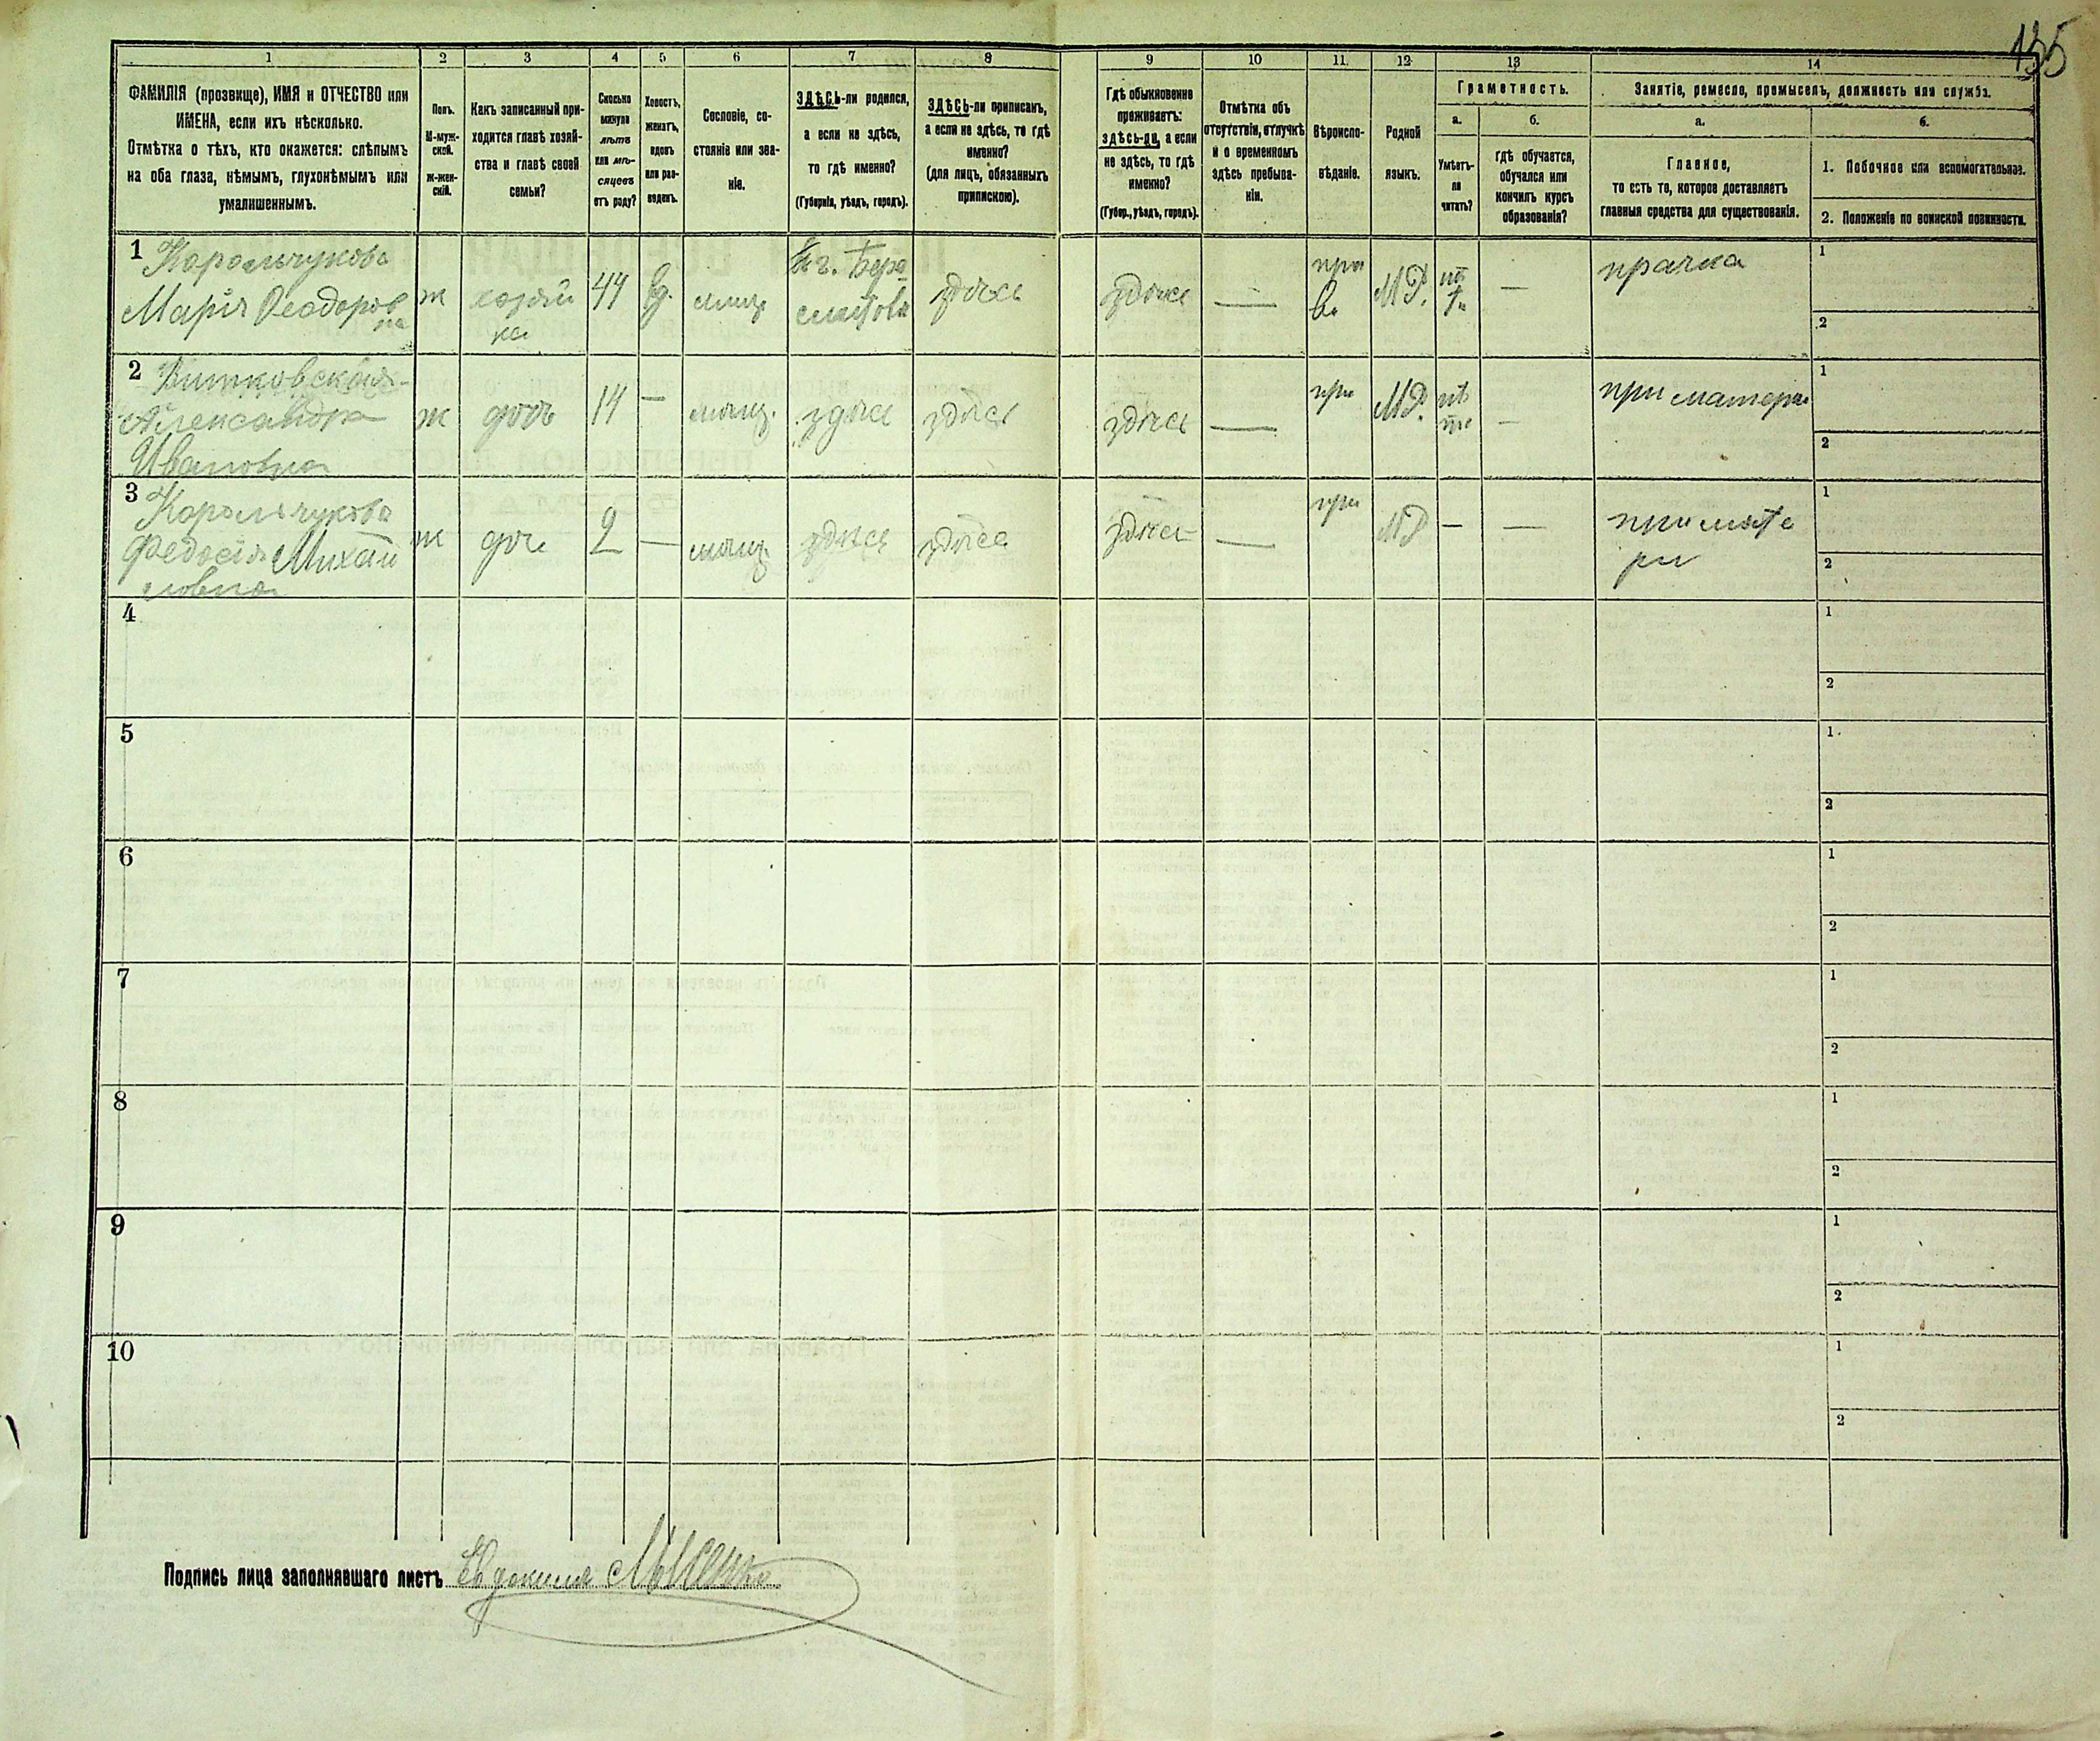 135
1 2 3 4 5 6 7 8 9 10 11 12 13 14
ФАМИЛІЯ (прозвище), ИМЯ и ОТЧЕСТВО или
ИМЕНА, если ихъ нѣсколько.
Отмѣтка о тѣхъ, кто окажется: слѣпымъ
на оба глаза, нѣмымъ, глухонѣмымъ или
умалишеннымъ.
Полъ.
М-муж-
ской.
ж-жен-
скій.
Какъ записанный при-
ходится главѣ хозяй-
ства и главѣ своей
семьи?
Сколько
минуло
лѣтъ
или мѣ-
сяцевъ
отъ роду?
Холостъ,
женатъ,
вдовъ
или раз-
веденъ.
Сословіе, со-
стояніе или зва-
ніе.
ЗДѢСЬ-ли родился,
а если не здѣсь,
то гдѣ именно?
(Губернія, уѣздъ, городъ).
ЗДѢСЬ-ли приписанъ,
а если не здѣсь, то гдѣ
именно?
(для лицъ, обязанныхъ
припискою).
Гдѣ обыкновенно
проживаетъ:
здѣсь-ли, а если
не здѣсь, то гдѣ
именно?
(Губер., уѣздъ, городъ).
Отмѣтка объ
отсутствіи, отлучкѣ
и о временномъ
здѣсь пребыва-
ніи.
Вѣроиспо-
вѣданіе.
Родной
языкъ.
Грамотность.
а.
Умѣетъ-
ли
читать?
б.
гдѣ обучается,
обучался или
кончилъ курсъ
образованія?
Занятіе, ремесло, промыселъ, должность или служба.
а.
Главное,
то есть то, которое доставляетъ
главныя средства для существованія.
б.
1. Побочное или вспомогательное.
2. Положеніе по воинской повинности.
1 Корольчукова
Марія Ѳеодоров
на
ж
хозяй
ка
44
вд.
мѣщ.
здѣсь
здѣсь
—
пра
в.
МР.
—
прачка
1
2
2 Витковская
Александра
Ивановна
ж
дочь
14
—
мѣщ.
здѣсь
здѣсь
здѣсь
—
пра
МР.
—
при матери
1
2
3 Корольчукова
Федосія Михай
ловна
ж
доч
2
—
мѣщ.
здѣсь
здѣсь
здѣсь
—
пра
МР
—
—
при мате
ри
1
2
4
1
2
5
1.
2
6
1
2
7
1
2
8
1
2
9
1
2
10
1
2
Подпись лица заполнявшаго листъ